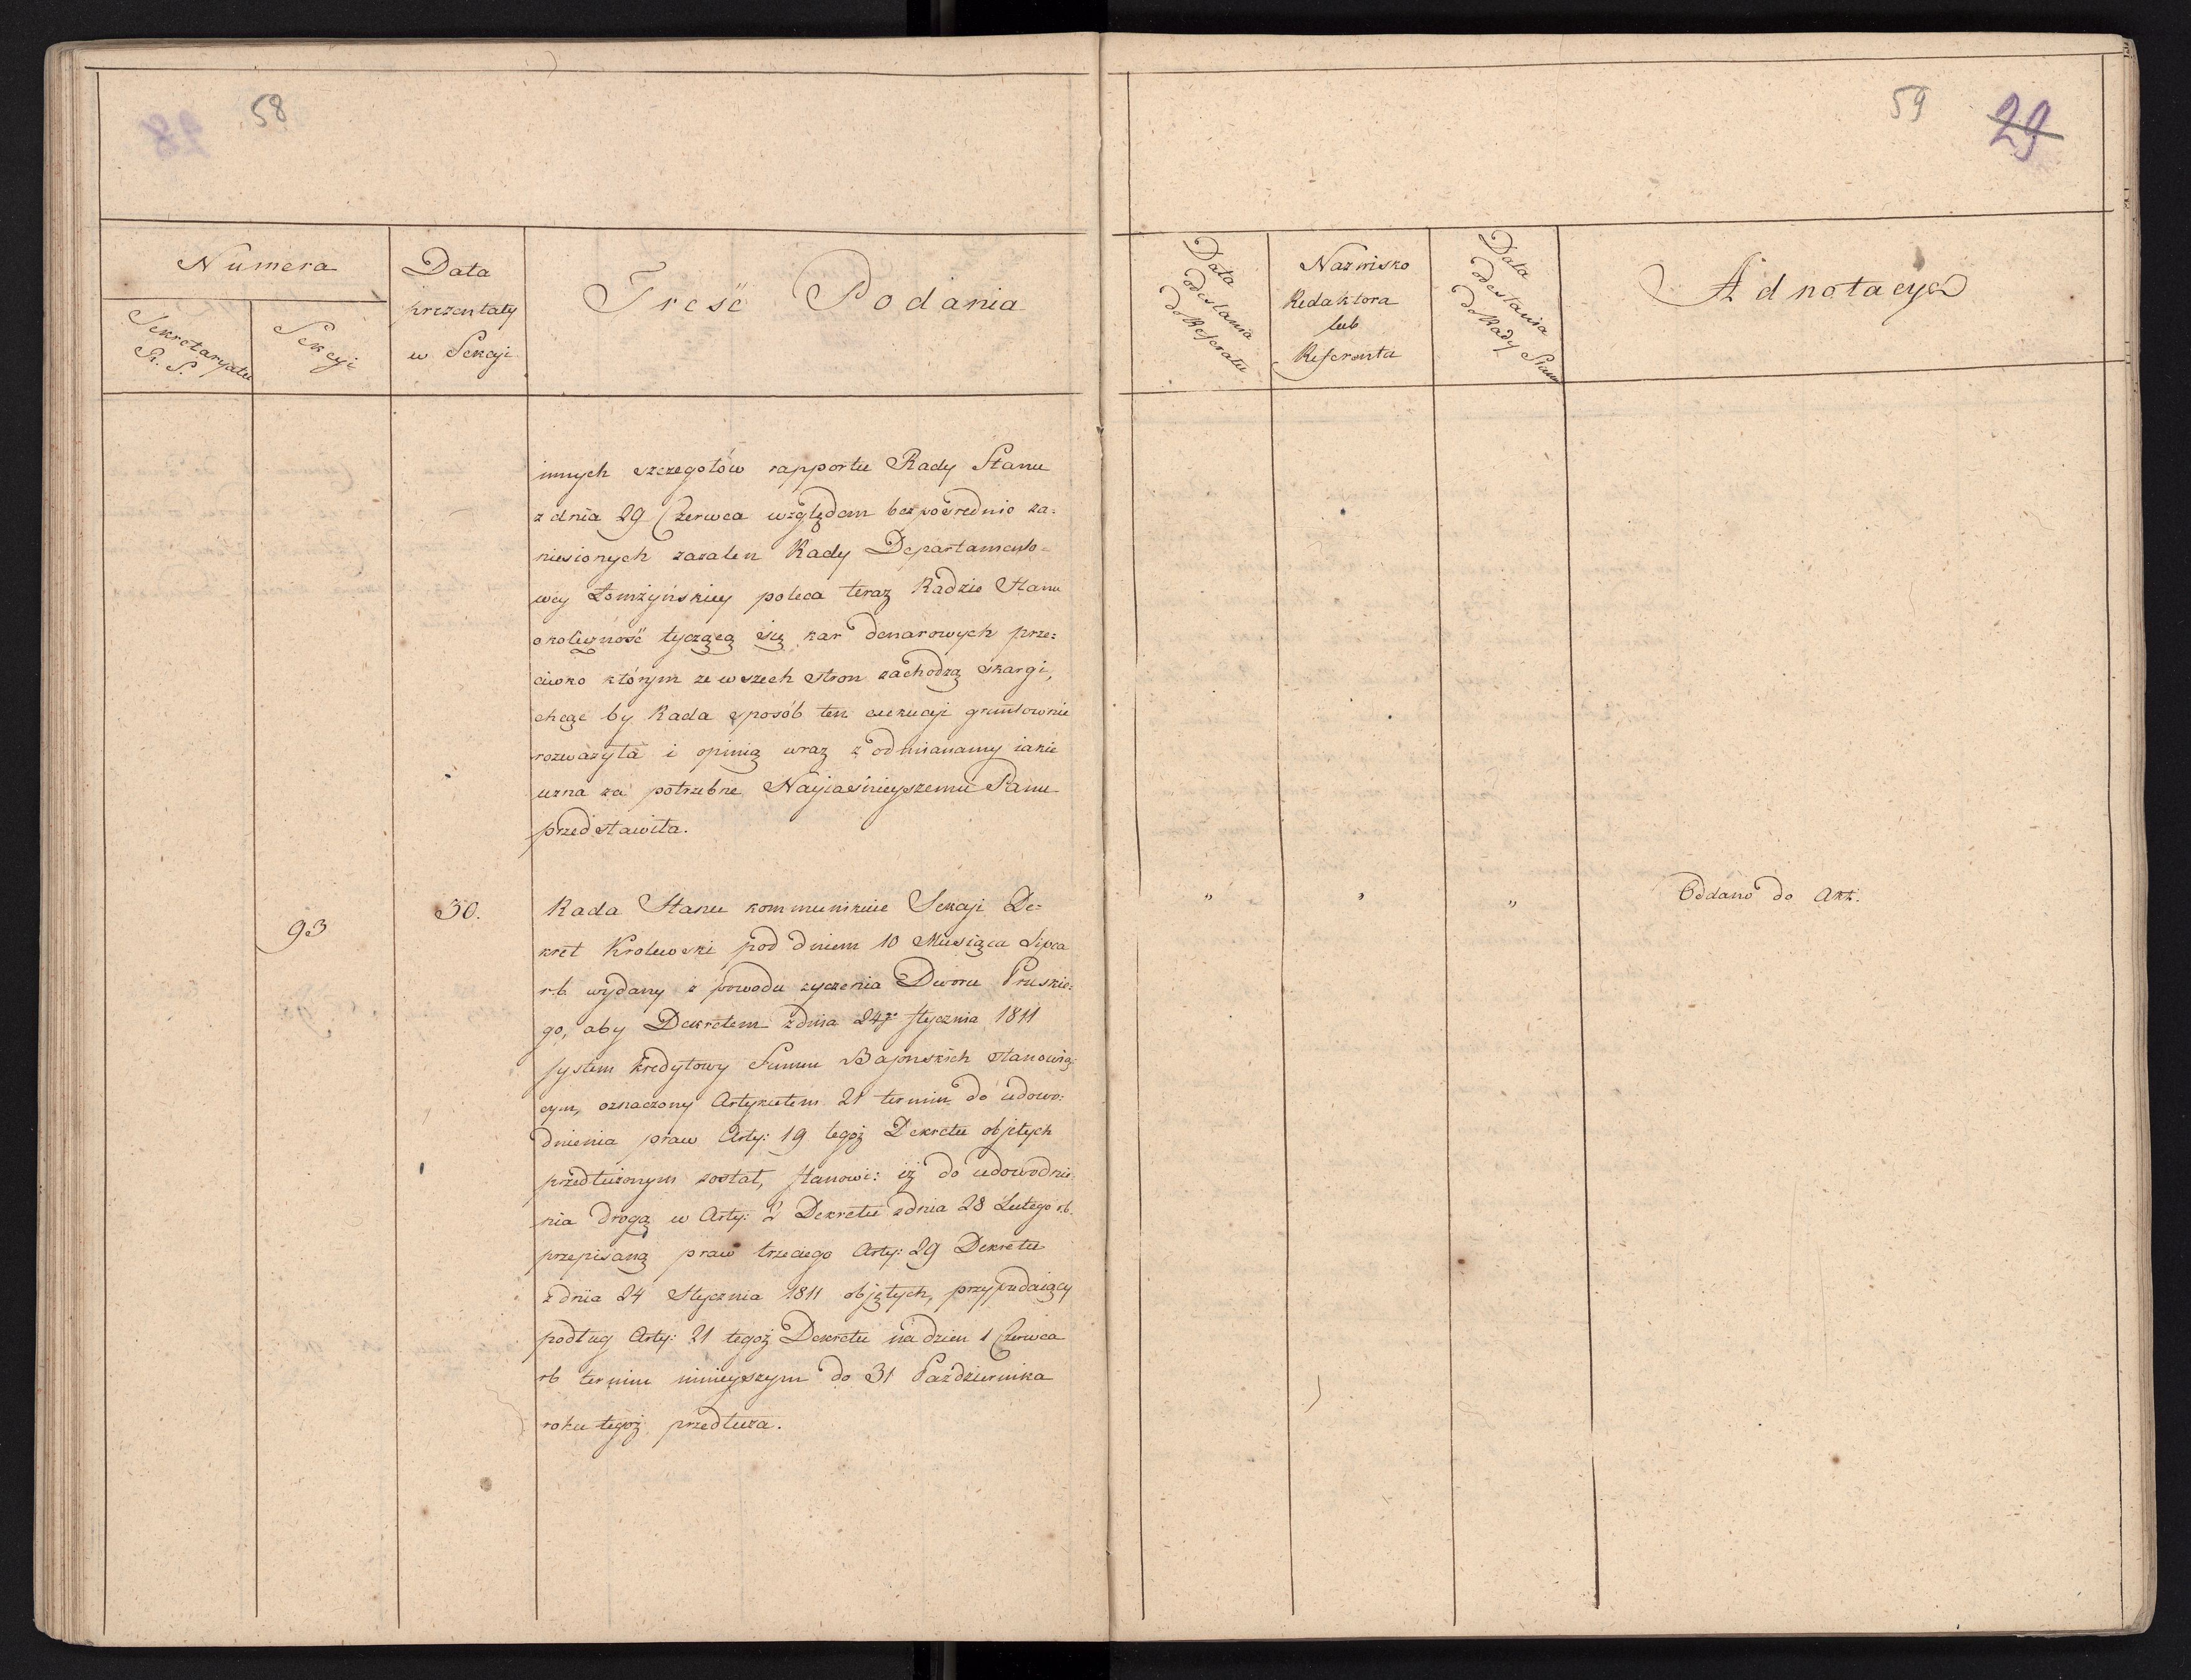 58
Numera
Sekretaryatu
R. S.
Sekcyi
Data
prezentaty
w Sekcyi
Treść Podania
innych szczegółów rapportu Rady Stanu
z dnia 29 Czerwca względem bezpośrednio za=
niesionych zażaleń Rady Departamento=
wey Łomżyńskiey poleca teraz Radzie Stanu
okoliczność tyczącą się kar denarowych prze=
ciwko którym ze wszech stron zachodzą skargi,
chcąc by Rada sposób ten exekucji gruntownie
rozważyła i opinią wraz z odmianamy iakie
uzna za potrzebne Nayiaśnieyszemu Panu
przedstawiła.
93
30.
Rada Stanu kommunikuie Sekcji De=
kret Krolewski pod dniem 10 Miesiąca Lipca
r.b. wydany z powodu życzenia Dworu Pruskie=
go, aby Dekretem z dnia 24go stycznia 1811
system kredytowy Summ Bajońskich stanowią=
cym, oznaczony Artykułem 21 termin do udowo=
dnienia praw Arty: 19 tegoż Dekretu objętych
przedłużonym został, stanowi: iż do udowodnie
nia drogą w Arty: 2 Dekretu z dnia 28 Lutego r.b.
przepisaną praw trzeciego Arty: 29 Dekretu
z dnia 24 Stycznia 1811 objętych, przypadaiący
podług Arty: 21 tegoż Dekretu na dzien 1 Czerwca
rb termin ninieyszym do 31 Października
roku tegoż przedłuża.
59
29
Data
odesłania
do Referatu
Nazwisko
Redaktora
lub
Referenta
Data
odesłania
do Rady Stanu
Adnotacye
" " " Oddano do Akt.